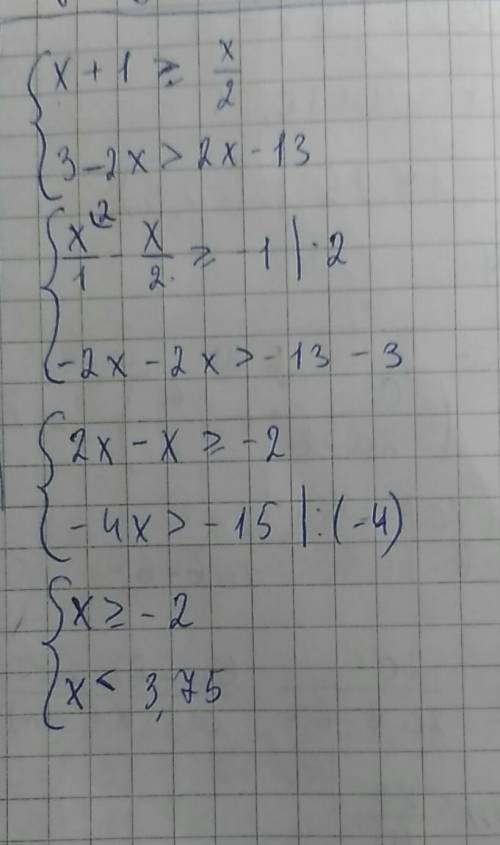 x + 1 ≥ x/2
3 - 2x > 2x - 13
x/1 ⁽² - x/2 ≥ -1 | · 2
-2x - 2x > -13 - 3
2x - x ≥ -2
-4x > -15 | : (-4)
x ≥ -2
x < 3,75